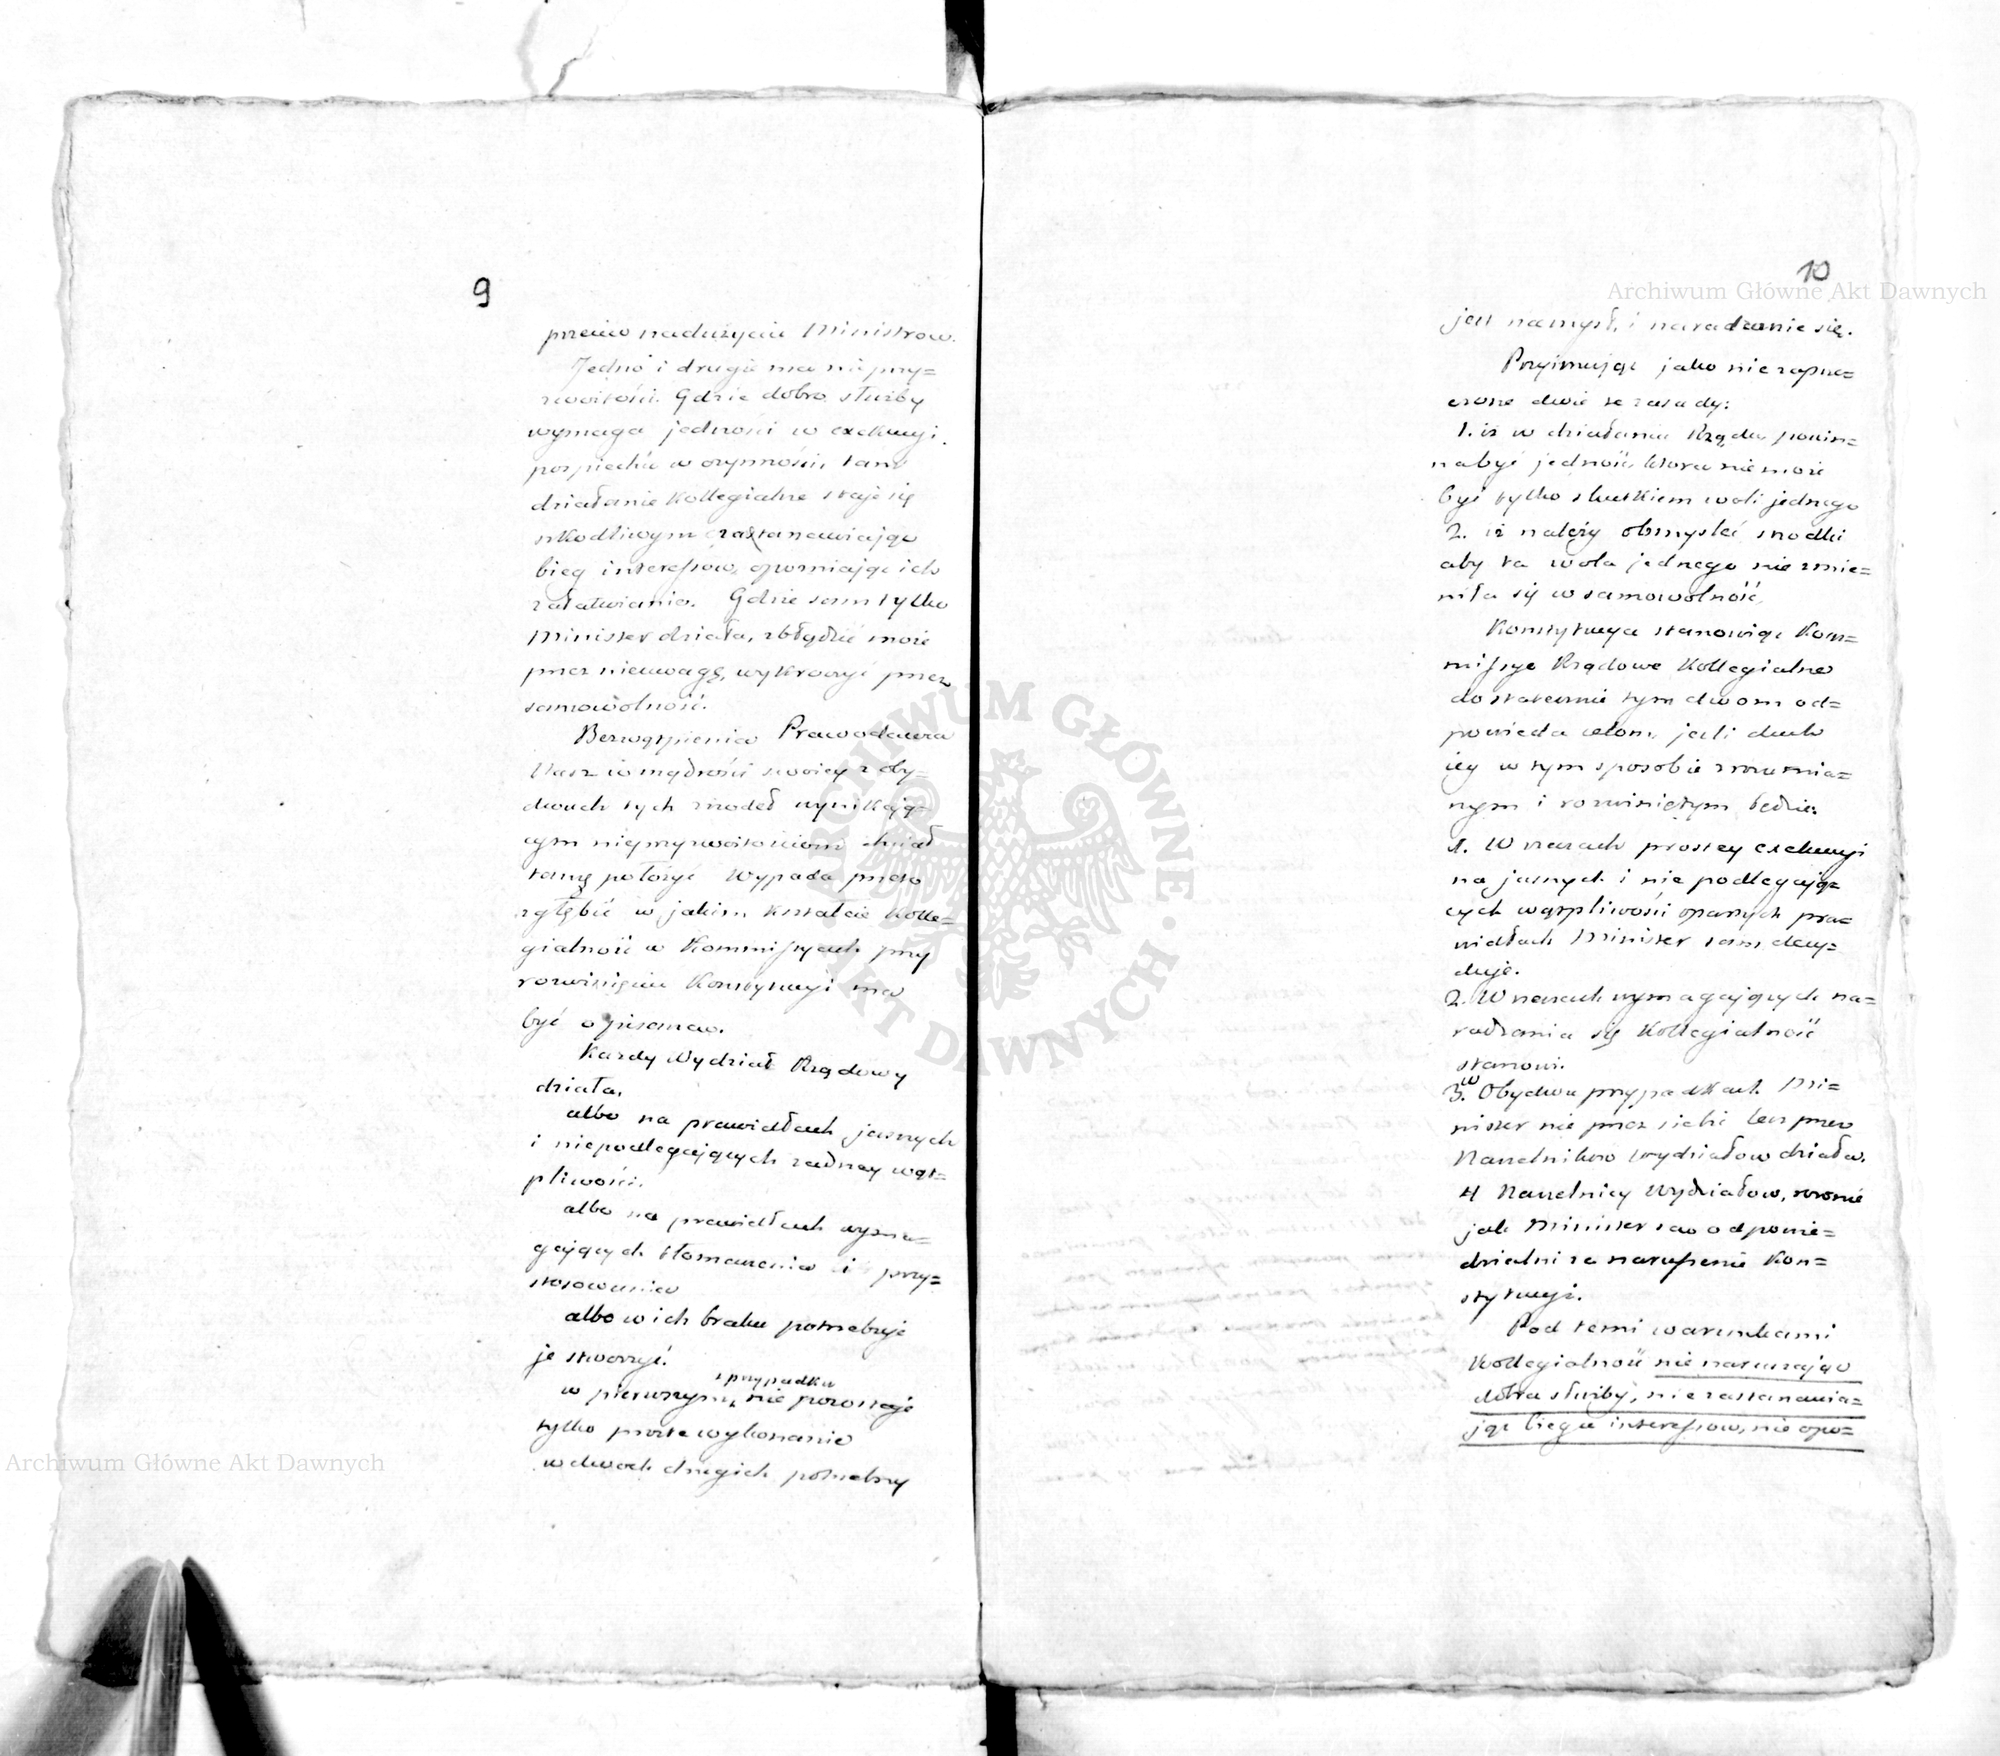 9
przeciw nadużyciu Ministrow.
Jedno i drugie ma nieprzy=
zwoitości. Gdzie dobro służby
wymaga jedności w exekucyi,
pospiechu w czynności, tam
działanie Kollegialne staje się
szkodliwym zastanawiając
bieg interessów, opóźniając ich
załatwianie. Gdzie sam tylko
Minister działa, zbłądzić może
przez nieuwagę, wykroczyć przez
samowolność.
Bezwątpienia Prawodawca
Nasz w mądrości swoiey z oby=
dwuch tych źrodeł wynikają=
cym nieprzyzwoitościom chciał
tamę położyć Wypada przeto
zgłębić w jakim kształcie Kolle=
gialność w Kommissyach przy
rozwinięciu Konstytucyi ma
być opisana.
Każdy Wydział Rządowy
działa,
albo na prawidłach jasnych
i niepodlegających żadney wąt=
pliwości.
albo na prawidłach wyma=
gających tłomaczenia i przy=
stosowania
albo w ich braku potrzebuje
je stworzyć.
w pierwszym przypadku nie pozostaje
tylko proste wykonanie
w dwoch drugich potrzebny
10
jest namysł, i naradzanie się.
Przyimując jako niezaprze=
czone dwie te zasady:
1. iż w działaniu Rządu powin=
na być jedność, ktora nie może
być tylko skutkiem woli jednego
2. iż należy obmyśleć środki
aby ta wola jednego nie zmie=
niła się w samowolność,
Konstytucya stanowiąc Kom=
missye Rządowe Kollegialne
dostatecznie tym dwom od=
powiada celom, jeśli duch
iey w tym sposobie zrozumia=
nym i rozwiniętym będzie.
1. W rzeczach prostey exekucyi
na jasnych i nie podlegają=
cych wątpliwości opartych pra=
widłach Minister sam decy=
duje.
2. W rzeczach wymagających na=
radzania się Kollegialność
stanowi.
3. w Obydwu przypadkach Mi=
nister nie przez siebie lecz przez
Naczelnikow Wydziałow działa.
4 Naczelnicy Wydziałow, rownie
jak Minister są odpowie=
dzialni za naruszenie Kon=
stytucyi.
Pod temi warunkami
Kollegialność nie naruszając
dobra służby, nie zastanawia=
jąc biegu interessow, nie opo=
Archiwum Główne Akt Dawnych
Archiwum Główne Akt Dawnych
ARCHIWUM GŁÓWNE · AKT DAWNYCH ·